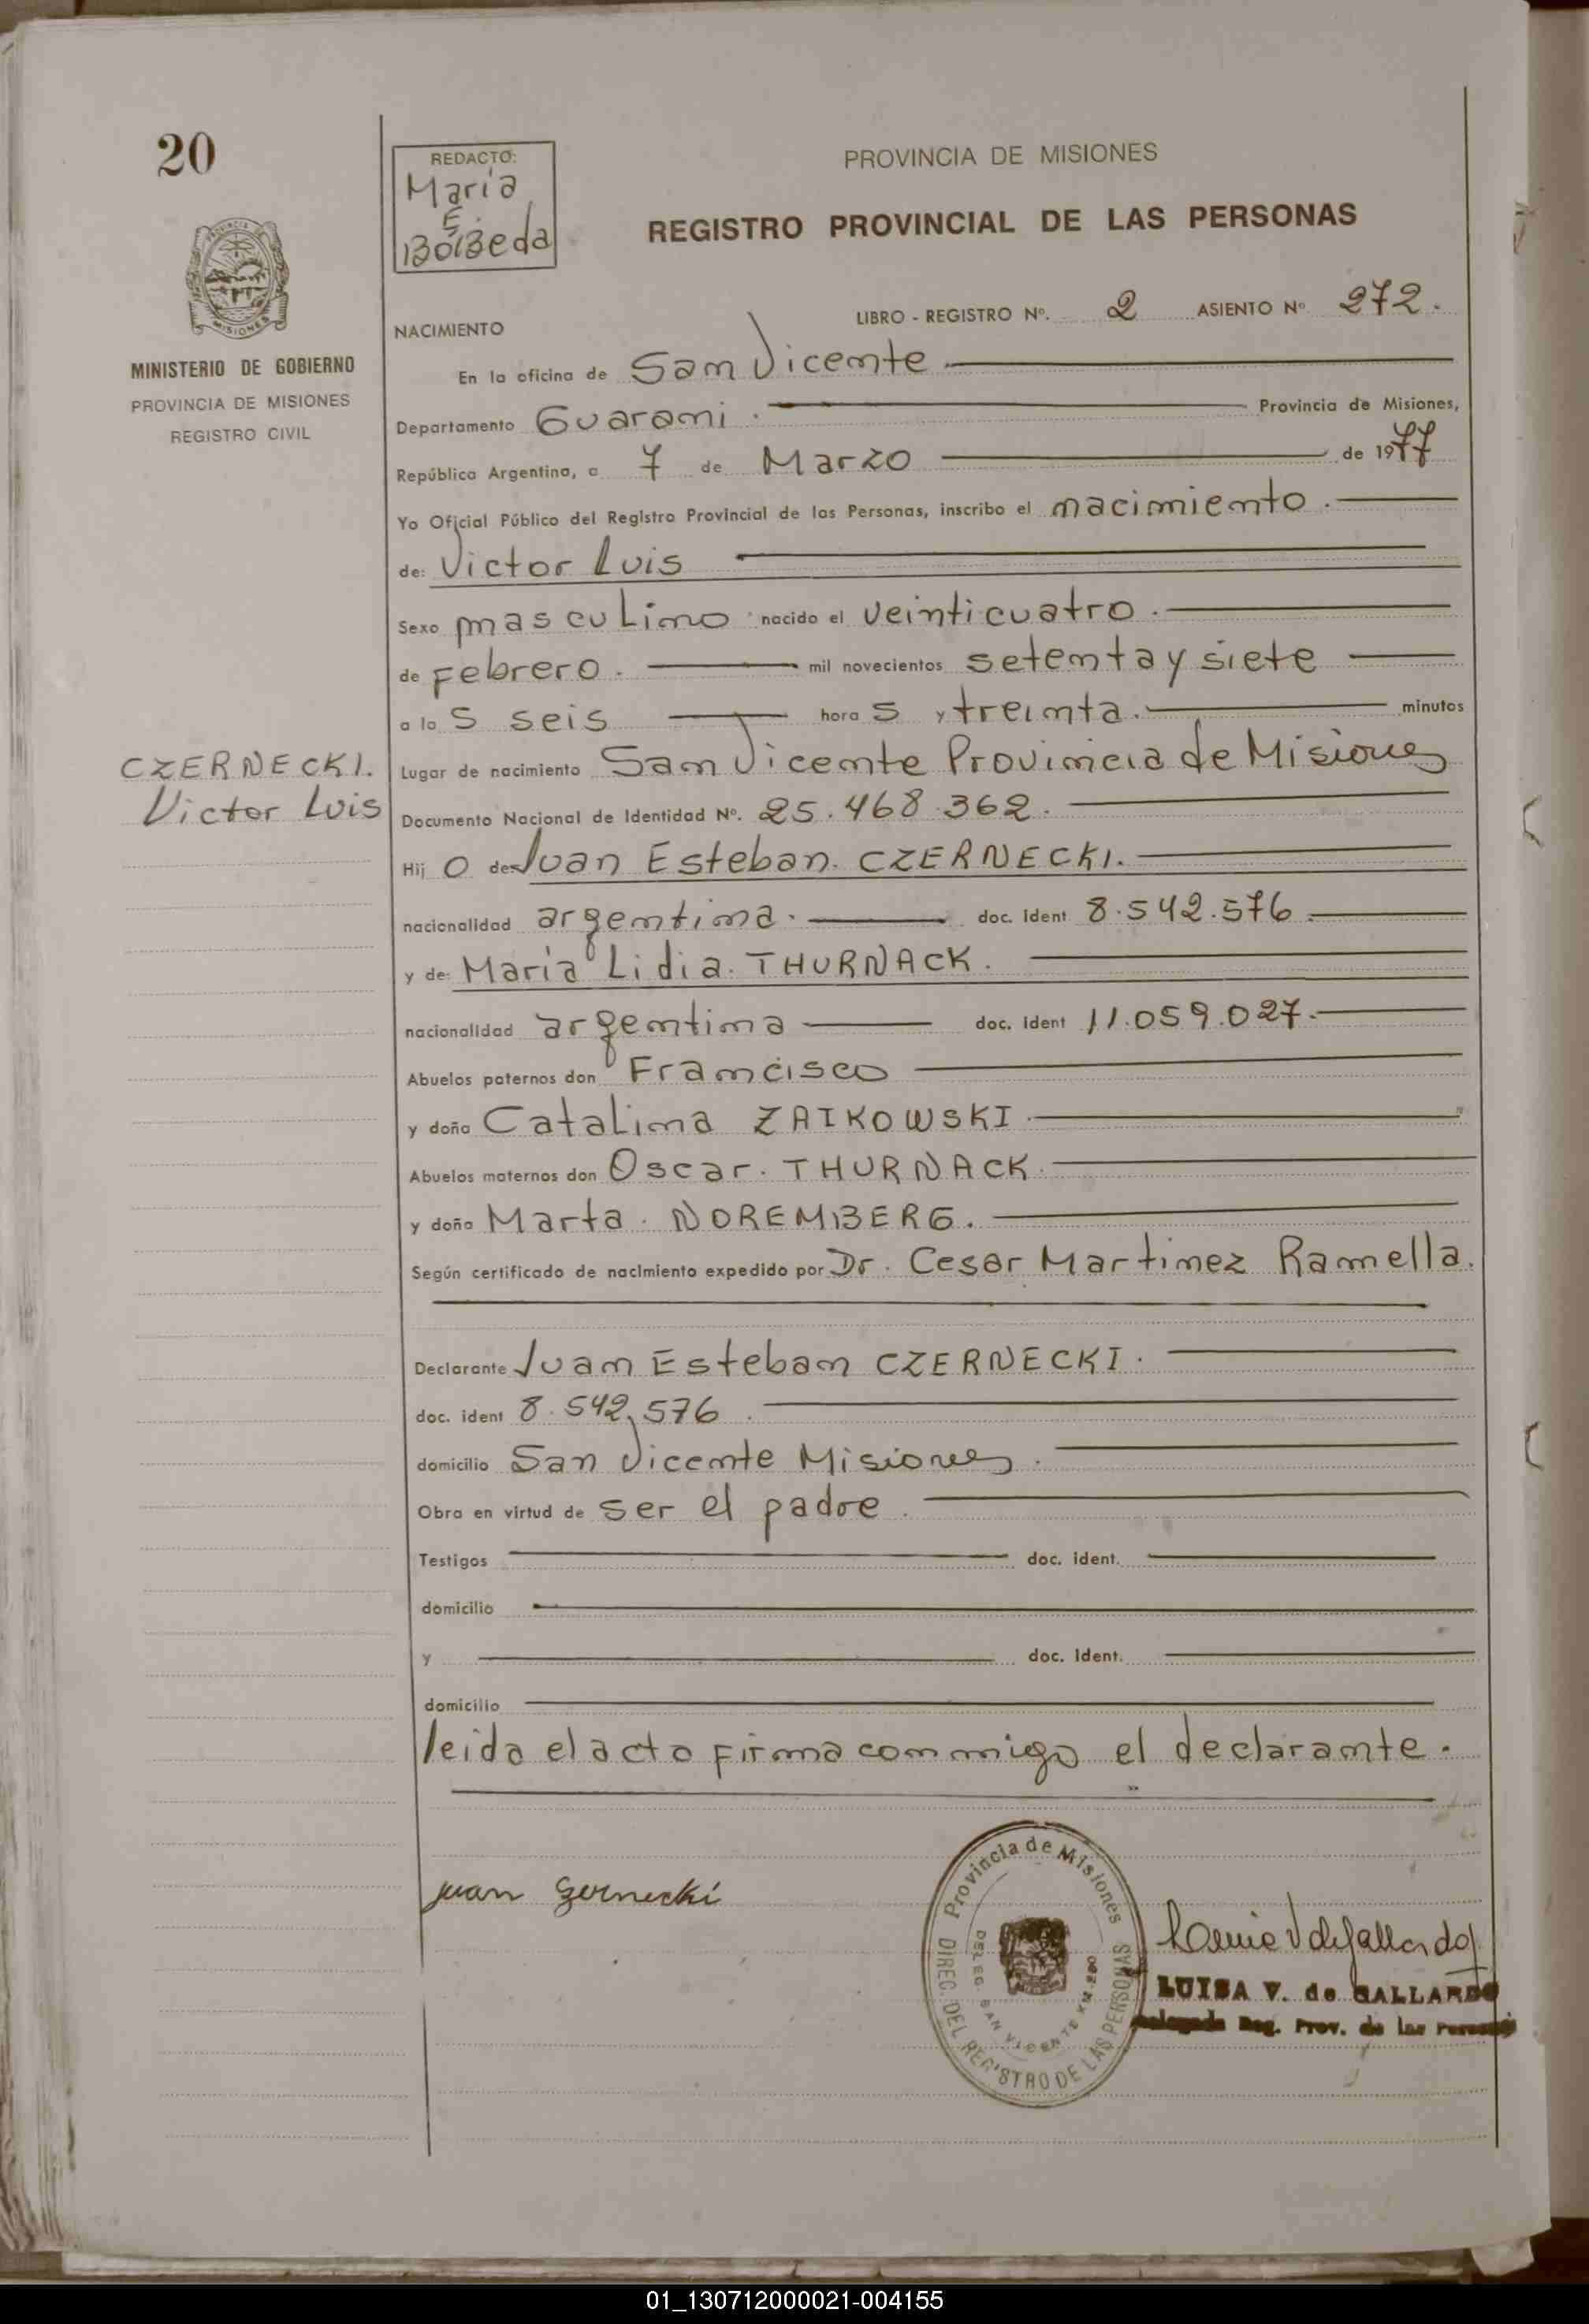 20
REDACTO:
Maria
E.
PROVINCIA DE MISIONES
REGISTRO PROVINCIAL DE LAS PERSONAS
LIBRO - REGISTRO Nº. 2 ASIENTO Nº 272.
NACIMIENTO
MINISTERIO DE GOBIERNO
PROVINCIA DE MISIONES
REGISTRO CIVIL
En la oficina de San Vicente
Departamento Guarani. Provincia de Misiones,
República Argentina, a 7 de Marzo de 1977
Yo Oficial Público del Registro Provincial de las Personas, inscribo el nacimiento.
de: Victor Luis
Sexo masculino nacido el veinticuatro.
de Febrero. mil novecientos setenta y siete
a la s seis hora s y treinta. minutos
Lugar de nacimiento San Vicente Provincia de Misiones
CZERNECKI.
Victor Luis
Documento Nacional de Identidad Nº. 25.468.362.
Hij o de: Juan Esteban. CZERNECKI.
nacionalidad argentina. doc. ident 8.542.576.
y de: María Lidia. THURNACK.
nacionalidad argentina doc. ident 11.059.027.
Abuelos paternos don Francisco
y doña Catalina ZAIKOWSKI.
Abuelos maternos don Oscar. THURNACK.
y doña Marta. NOREMBERG.
Según certificado de nacimiento expedido por Dr. Cesar Martinez Ramella.
Declarante Juan Esteban CZERNECKI.
doc. ident 8.542.576.
domicilio San Vicente Misiones.
Obra en virtud de ser el padre.
Testigos doc. ident.
domicilio
y doc. Ident.
domicilio
leida el acta firma conmigo el declarante.
Provincia de Misiones
DIREC. DEL REGISTRO DE LAS PERSONAS
DELEG. SAN VICENTE KM. 280
juan Czernecki
LUISA V. de GALLARDO
Delegada Reg. Prov. de las Personas
01_130712000021-004155